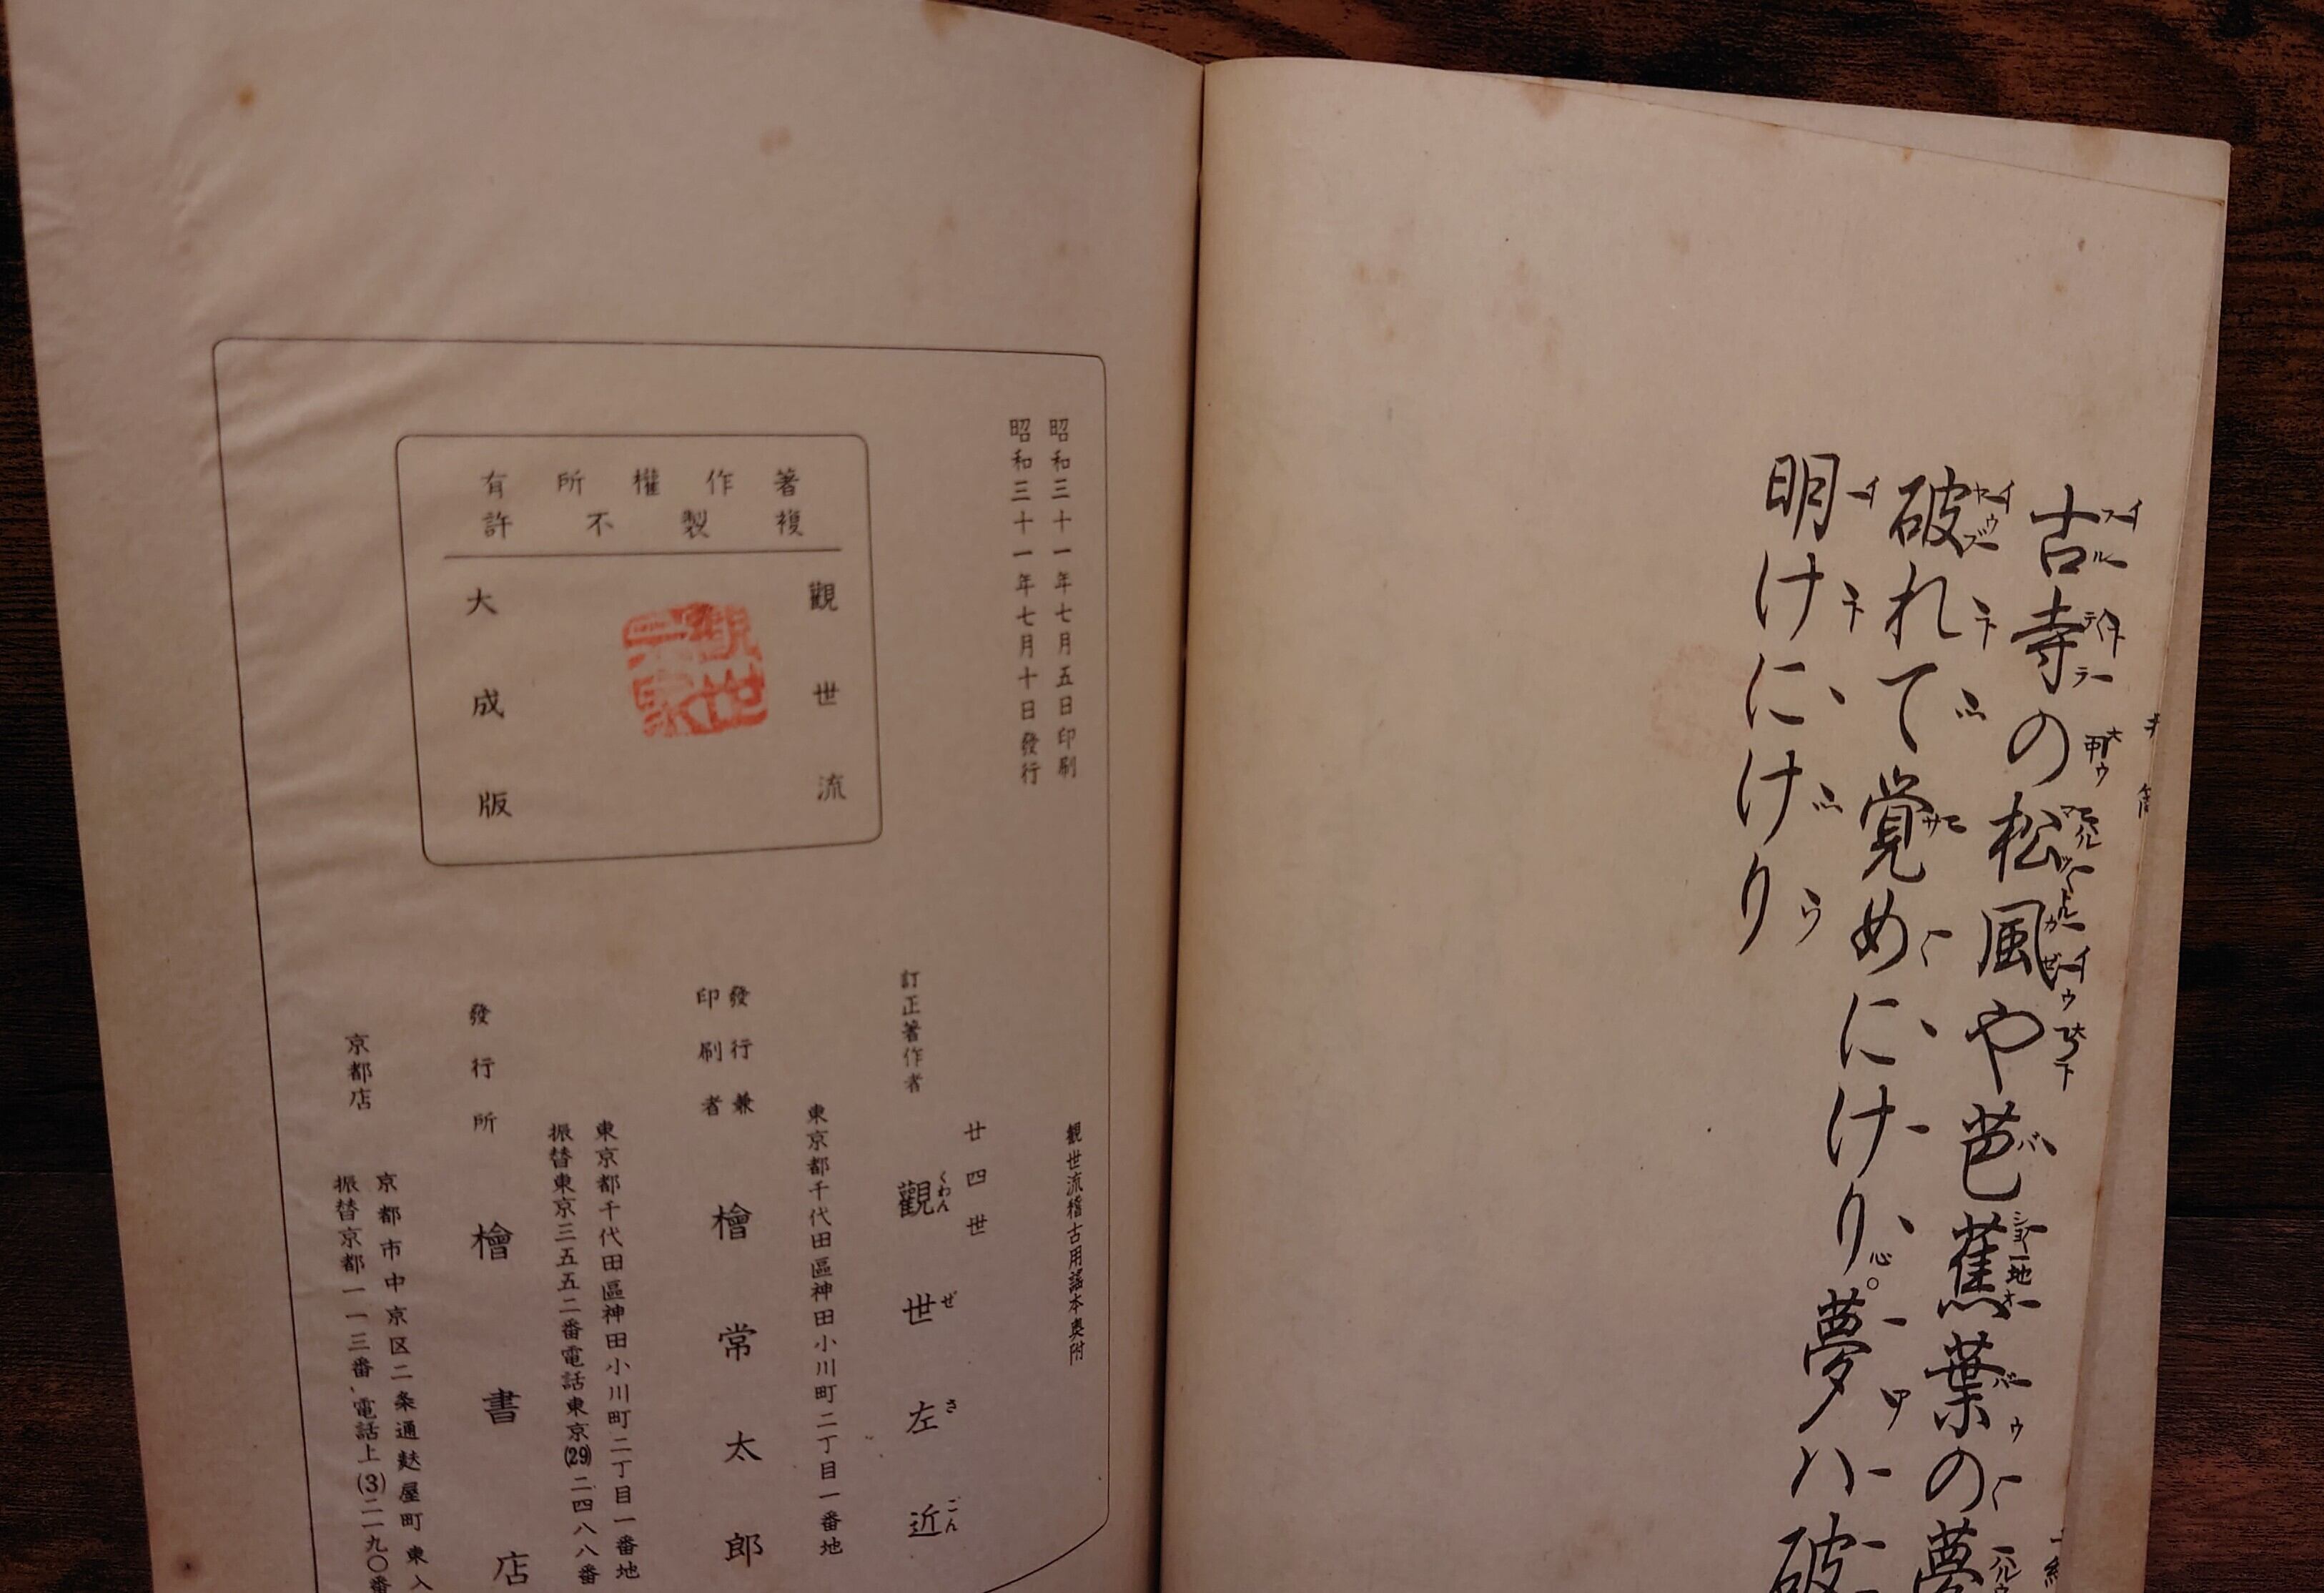 古寺の松風や芭蕉葉の夢
破れて覚めにけり。夢ハ破
明けにけり
觀世流稽古用謠本奥附
昭和三十一年七月五日印刷
昭和三十一年七月十日發行
著作權所有
複製不許
觀世流
大成版
觀世宗家
訂正著作者
廿四世
觀世左近
くわんぜさごん
東京都千代田區神田小川町二丁目一番地
發行兼
印刷者
檜常太郎
東京都千代田區神田小川町二丁目一番地
振替東京三五五二番電話東京(29)二四八八番
發行所
檜書店
京都店
京都市中京区二条通麩屋町東入
振替京都一一三番、電話上(3)二一九〇番